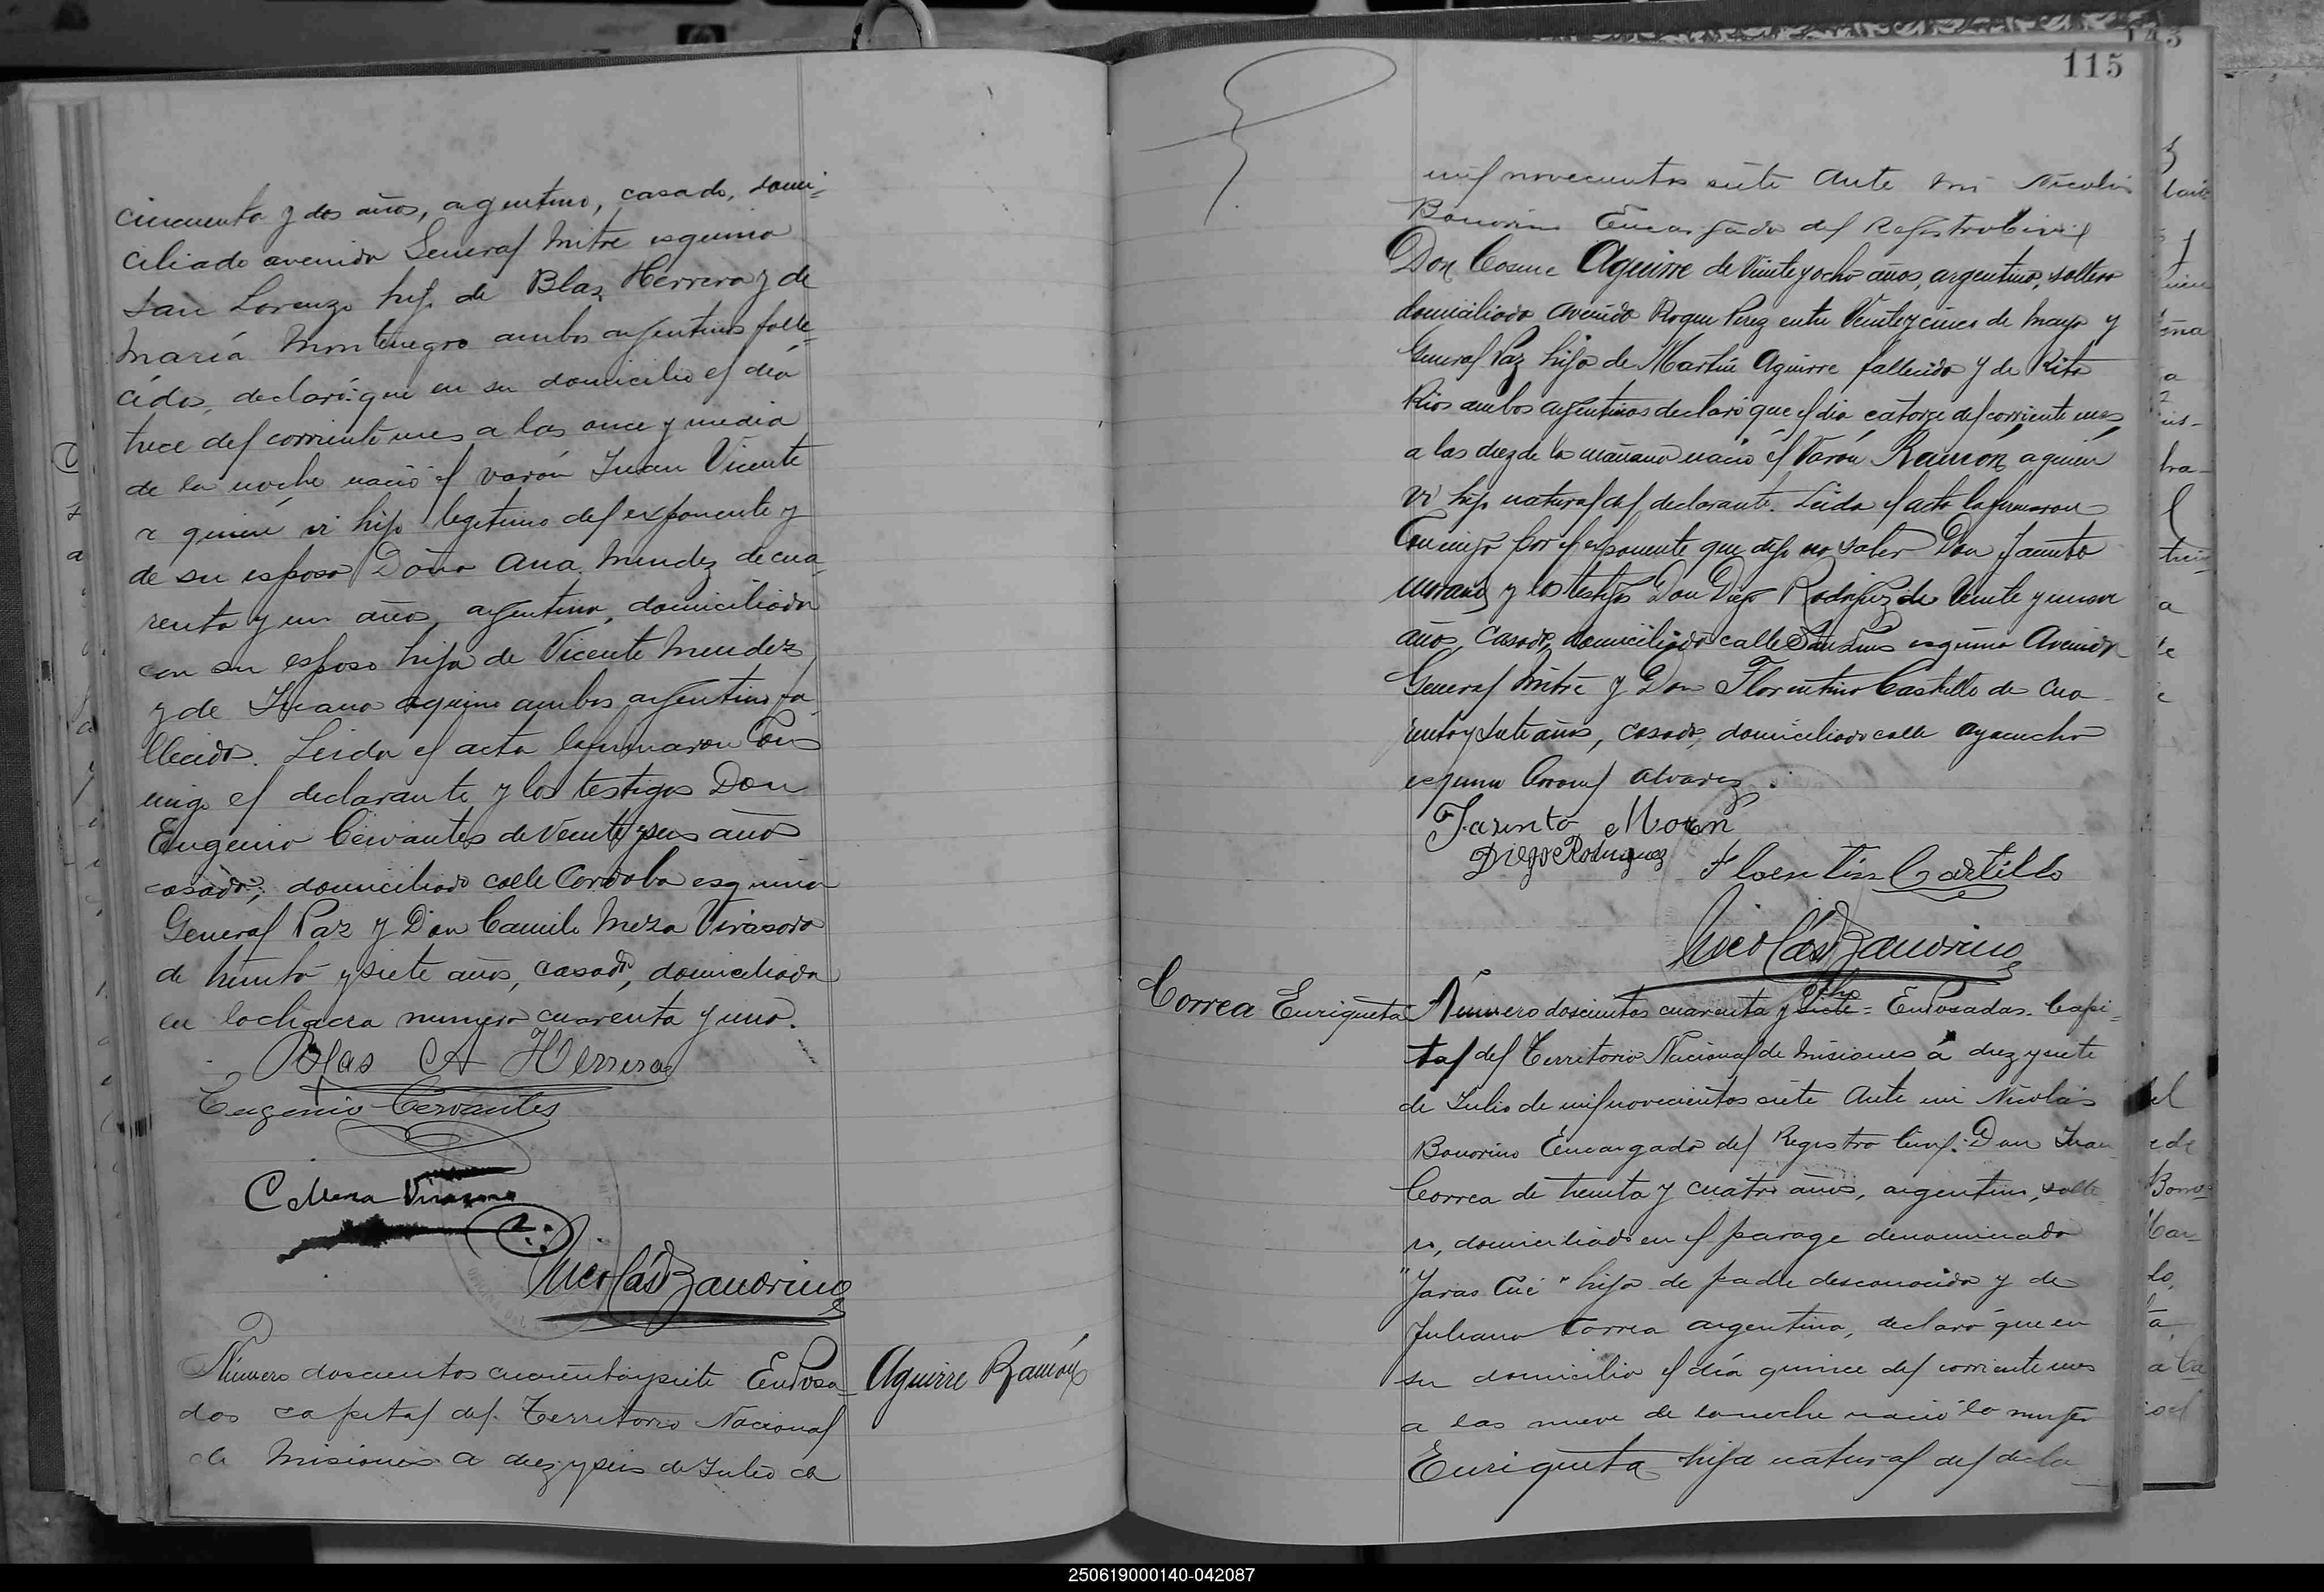 cincuenta y dos años, argentino, casado, domi-
ciliado avenida General Mitre esquina
San Lorenzo hijo de Blas Herrera y de
María Montenegro ambos argentinos falle-
cidos, declaró: que en su domicilio el día
trece del corriente mes a las once y media
de la noche nació el varón Juan Vicente
a quien ví hijo legitimo del exponente y
de su esposa Doña Ana Mendez de cua-
renta y un años, argentina, domiciliada
con su esposo hija de Vicente Mendez
y de Juana Aquino ambos argentinos fa-
llecidos. Leida el acta la firmaron Con-
migo el declarante y los testigos Don
Eugenio Cervantes de veinte y seis años
casado, domiciliado calle Cordoba esquina
General Paz y Don Camilo Meza Virasoro
de treinta y siete años, casado, domiciliado
en la chacra numero cuarenta y uno.
Blas A Herrera
Eugenio Cervantes
C Meza Virasoro
Nicolás Bonorino
Número doscientos cuarenta y siete En Posa-
Aguirre Ramón
das capital del Territorio Nacional
de Misiones a diez y seis de Julio de
115
mil novecientos siete Ante mi Nicolás
Bonorino Encargado del Registro Civil
Don Cosme Aguirre de veinte y ocho años, argentino, soltero
domiciliado Avenida Roque Perez entre Veinte y cinco de Mayo y
General Paz hijo de Martín Aguirre fallecido y de Rita
Rios ambos argentinos declaró que el dia catorce del corriente mes
a las diez de la mañana nació el Varón Ramón a quien
ví hijo natural del declarante. Leida el acta la firmaron
Conmigo por el exponente que dijo no saber Don Jacinto
Morain y los testigos Don Diego Rodriguez de Veinte y nueve
años, casado, domiciliado calle San Luis esquina Avenida
General Mitre y Don Florentino Castillo de cua-
renta y siete años, casado, domiciliado calle Ayacucho
esquina Coronel Alvarez.
Jacinto Morin
Diego Rodriguez
Florentin Castillo
Nicolás Bonorino
ocho
Correa Enriqueta Número doscientos cuarenta y siete = En Posadas. Capi-
tal del Territorio Nacional de Misiones á diez y siete
de Julio de mil novecientos siete Ante mi Nicolás
Bonorino Encargado del Registro Civil: Don Juan
Correa de treinta y cuatro años, argentino, solte-
ro, domiciliado en el parage denominado
"Jaras Cué" hijo de padre desconocido y de
Juliana Correa argentina, declaró que en
su domicilio el día quince del corriente mes
a las nueve de la noche nació la mujer
Enriqueta hija natural del decla-